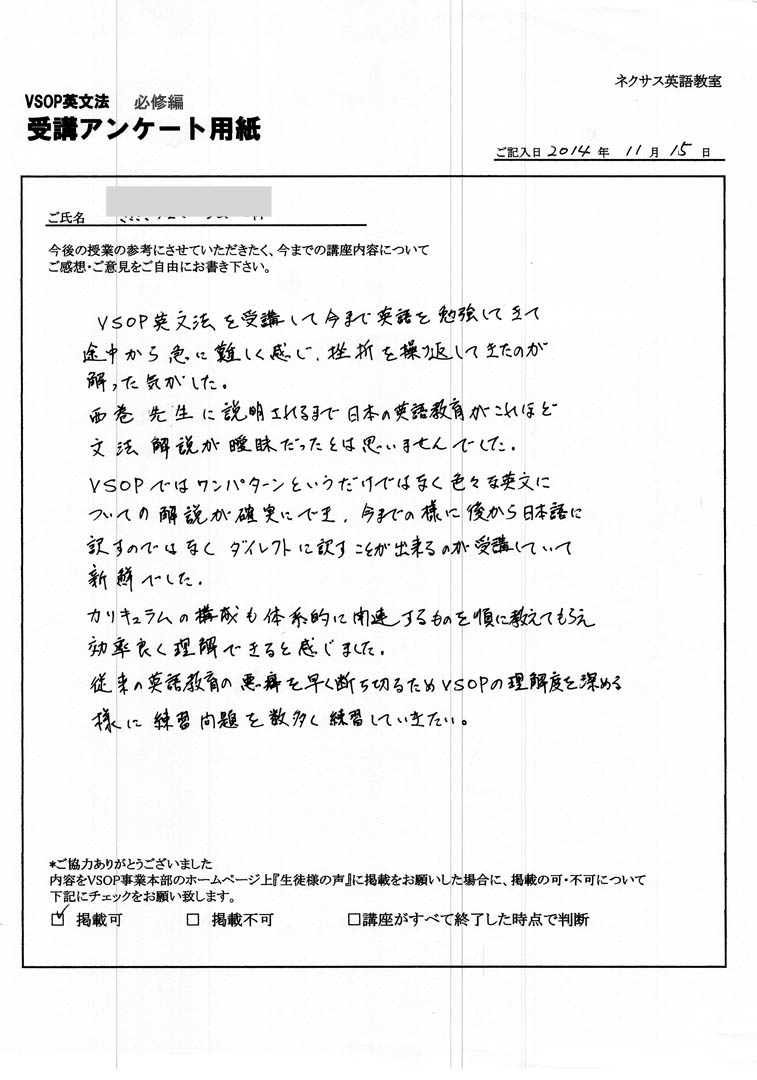 ネクサス英語教室
VSOP英文法 必修編
受講アンケート用紙
ご記入日 2014 年 11 月 15 日
ご氏名
今後の授業の参考にさせていただきたく、今までの講座内容について
ご感想・ご意見をご自由にお書き下さい。
VSOP英文法を受講して今まで英語を勉強してきて
途中から急に難しく感じ、挫折を操り返してきたのが
解った気がした。
西巻先生に説明されるまで日本の英語教育がこれほど
文法解説が曖昧だったとは思いませんでした。
VSOPではワンパターンというだけではなく色々な英文に
ついての解説が確実にでき、今までの様に後から日本語に
訳すのではなくダイレクトに訳すことが出来るのが受講していて
新鮮でした。
カリキュラムの構成も体系的に関連するものを順に教えてもらえ
効率良く理解できると感じました。
従来の英語教育の悪癖を早く断ち切るためVSOPの理解度を深める
様に練習問題を数多く練習していきたい。
*ご協力ありがとうございました
内容をVSOP事業本部のホームページ上『生徒様の声』に掲載をお願いした場合に、掲載の可・不可について
下記にチェックをお願い致します。
☑ 掲載可 □ 掲載不可 □講座がすべて終了した時点で判断